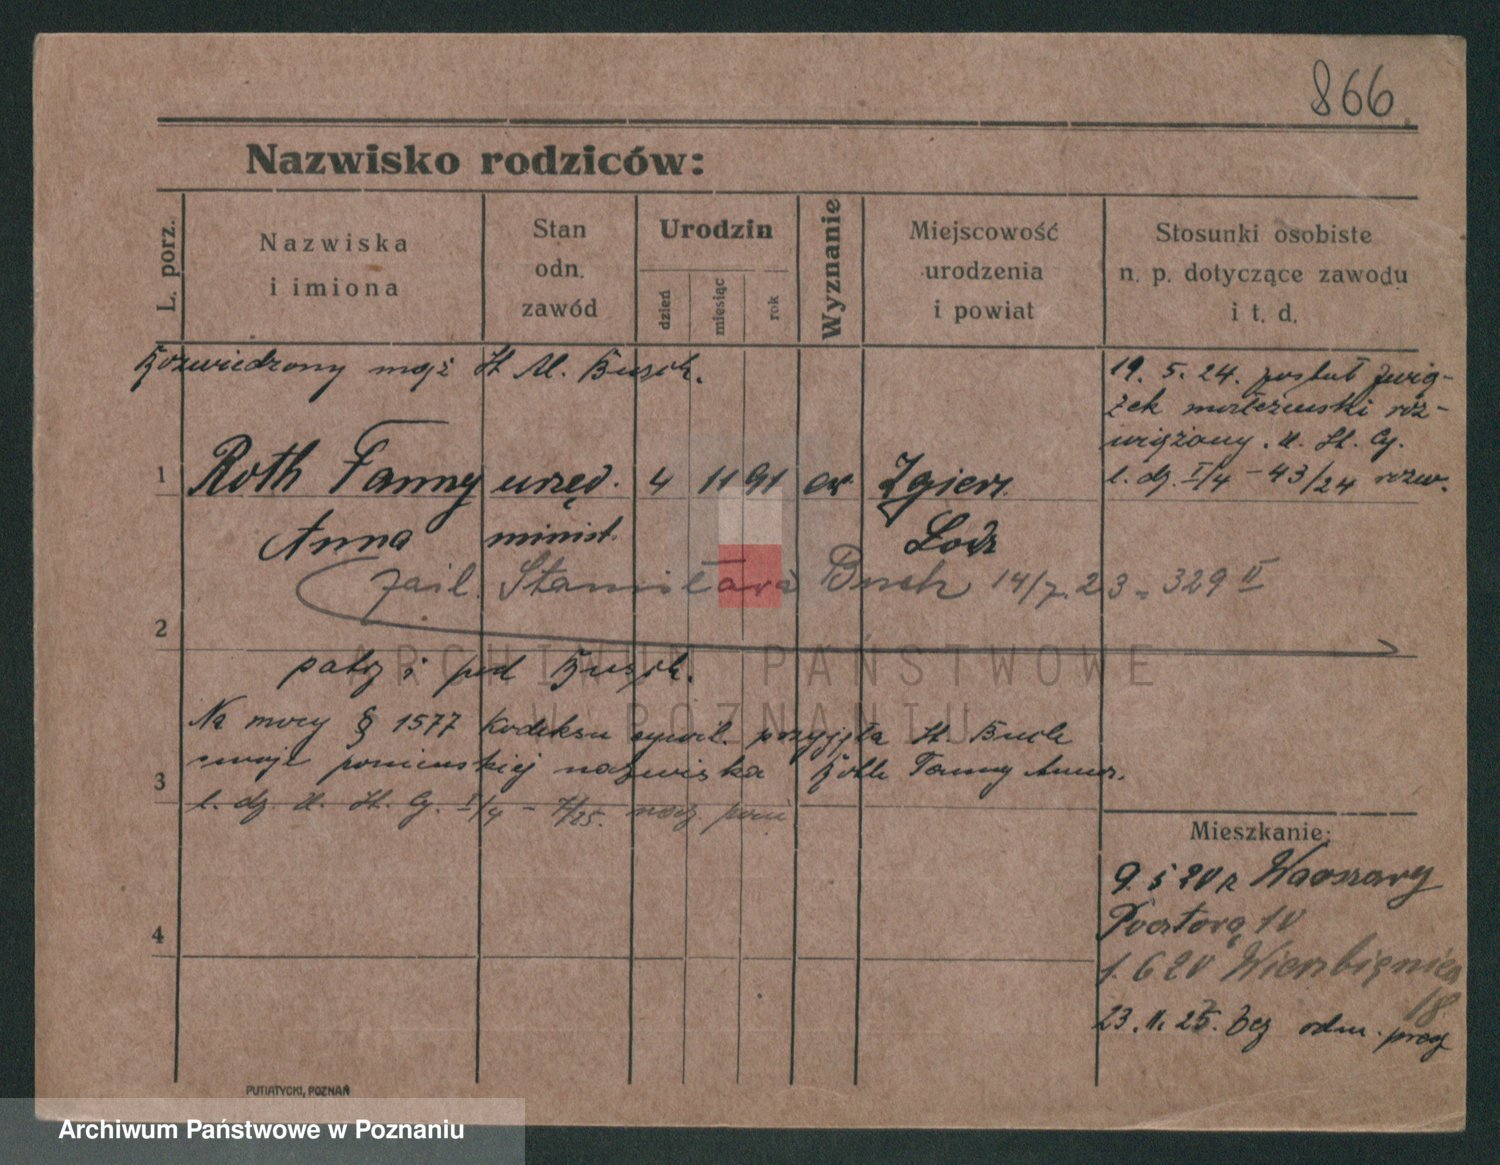 866
Nazwisko rodziców:
L. porz.
Nazwiska
i imiona
Stan
odn.
zawód
Urodzin
dzień
miesiąc
rok
Wyznanie
Miejscowość
urodzenia
i powiat
Stosunki osobiste
n. p. dotyczące zawodu
i t. d.
Rozwiedziony mąż St. M. Busch.
19. 5. 24. został zwią-
zek małżeński roz-
wiązany.
I/4 - 43/24 rozw.
1 Roth Fanny urzęd. 4 11 91 ew Zgierz
Anna minist. Łodz
zaśl. Stanisława Busch 14/7. 23 - 329 II
2
patrz i pod Busch.
Na mocy § 1577 Kodeksu cywil. przyjęła St. Busch
swoje panieńskiej nazwiska Roth Fanny Anna.
3
l. dz. I/4 - 7/25.
Mieszkanie:
9. 5 20 z Warszawy
Pocztowa 10
1. 6 20 Wierzbięcice
18
23. 11. 25. bez odm.
4
PUTIATYCKI, POZNAŃ
ARCHIWUM PAŃSTWOWE
W POZNANIU
Archiwum Państwowe w Poznaniu